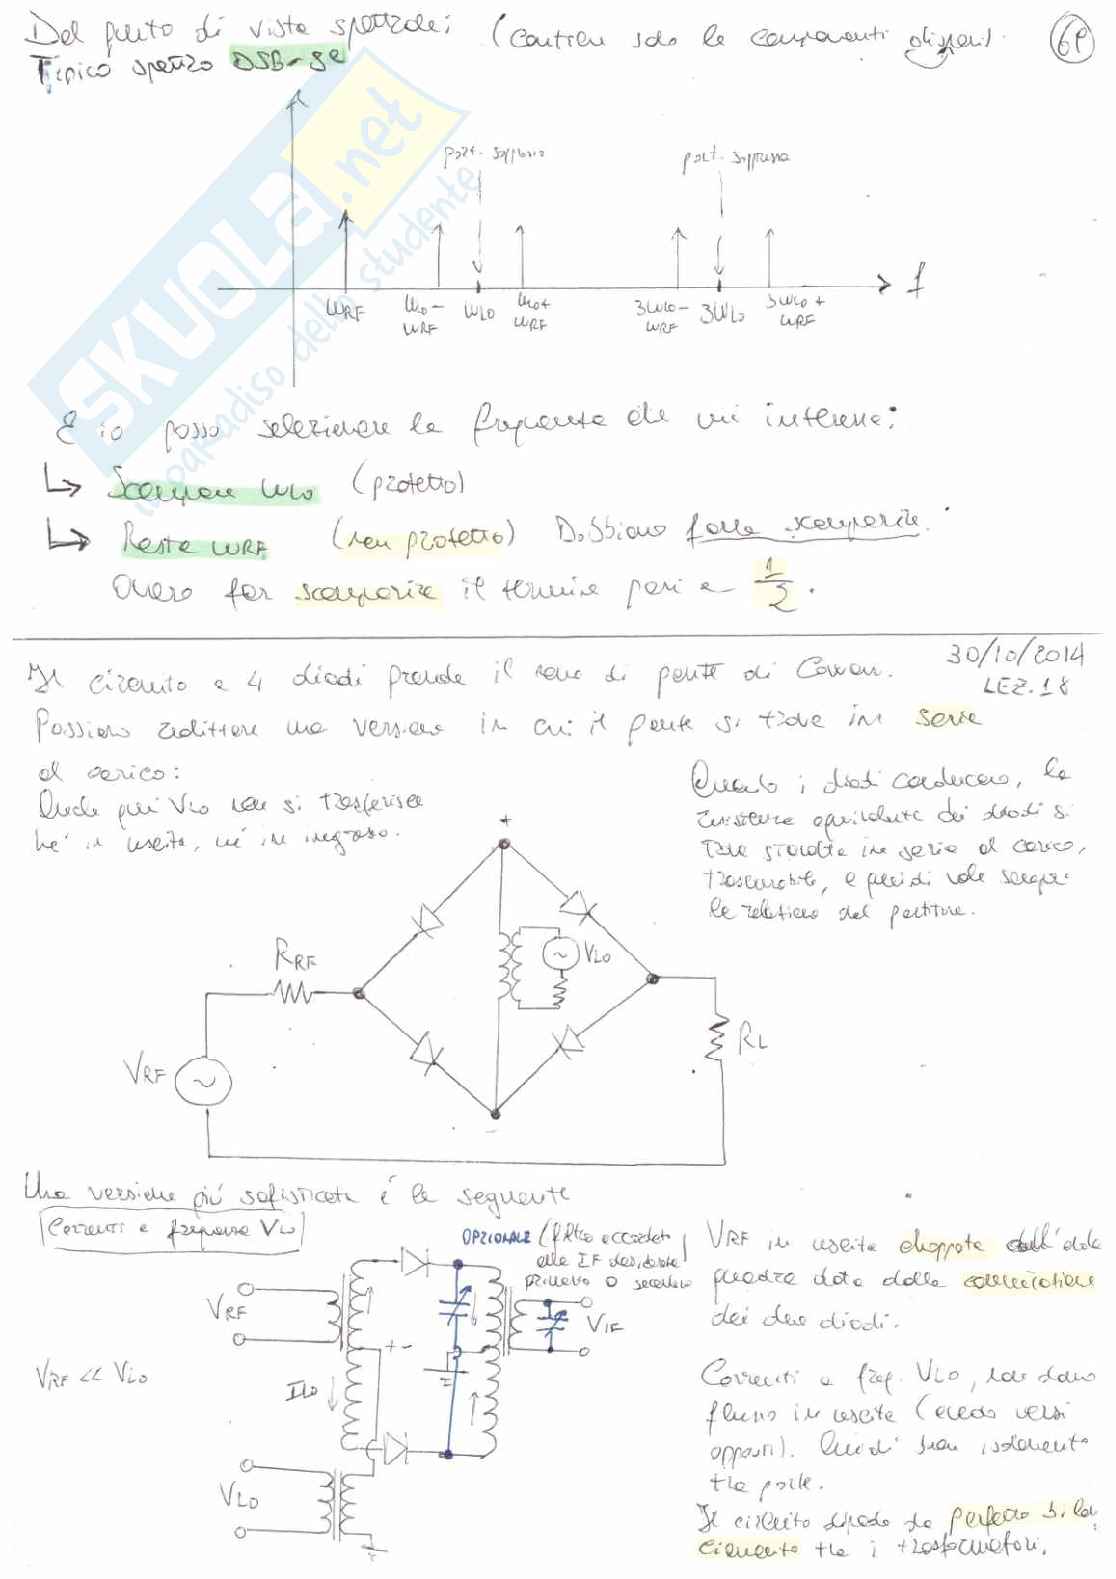 Del punto di vista spettrale: (contiene solo le componenti dispari).
6P
Tipico spettro DSB-SC
port. soppressa
port. soppressa
f
WRF
WLO - WRF
WLO
WLO + WRF
3WLO - WRF
3WLO
3WLO + WRF
E io posso selezionare la frequenza che mi interessa:
↳ Scompare WLO (protetto)
↳ Resta WRF (non protetto) Dobbiamo farla scomparire.
Ovvero far scomparire il termine pari a 1/2.
30/10/2014
LEZ. 18
Il circuito a 4 diodi prende il nome di ponte di Cowan.
Possiamo adottare una versione in cui il ponte si trova in serie
al carico:
Anche qui VLO non si trasferisce
né in uscita, né in ingresso.
Quando i diodi conducono, la
resistenza equivalente dei diodi si
trova stavolta in serie al carico,
trascurabile, e quindi vale sempre
la relazione del partitore.
+
RRF
VLO
RL
VRF
-
Una versione più sofisticata é la seguente
Correnti a frequenza VLO
OPZIONALE (filtro accordato
alla IF desiderata
primario o secondario
VRF
+ -
VIF
VRF << VLO
ILO
VLO
VRF in uscita choppata dall'onda
quadra data dalla commutazione
dei due diodi.
Correnti a freq. VLO, non danno
flusso in uscita (avendo versi
opposti). Quindi buon isolamento
tra porte.
Il circuito dipende da perfetto bilan-
ciamento tra i trasformatori.
SKUOLA.net
il paradiso dello studente